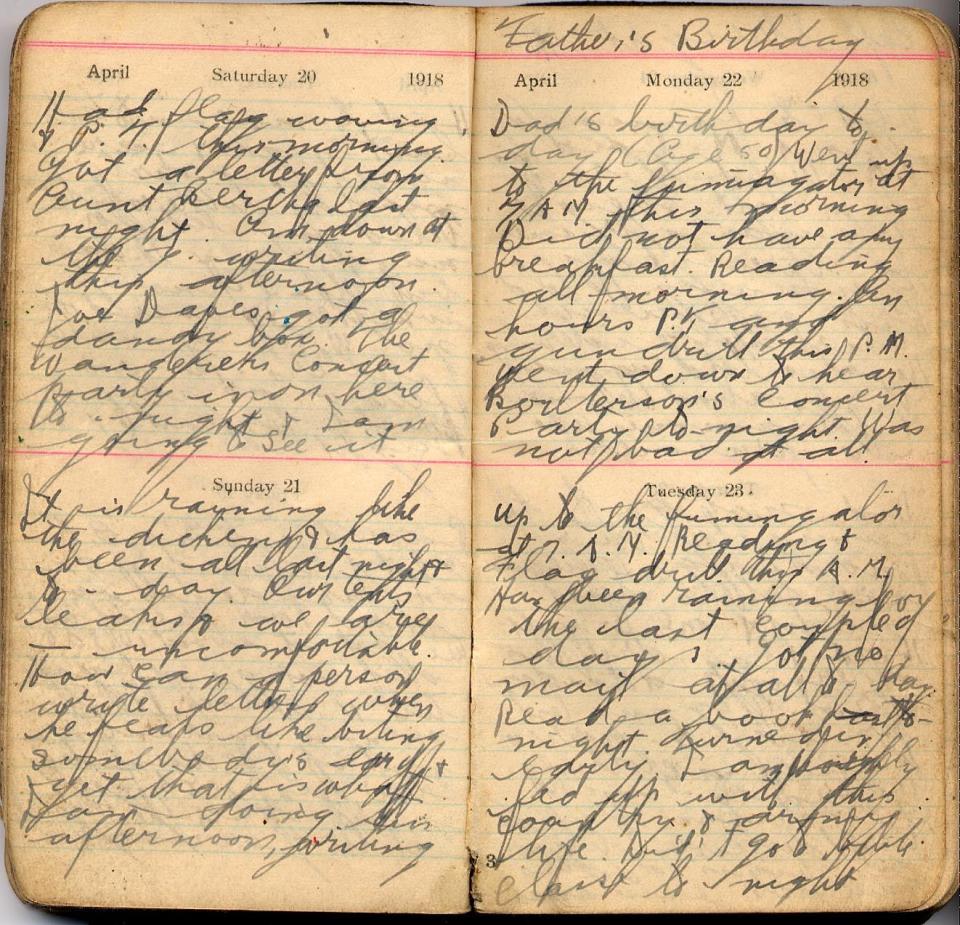 April Saturday 20 1918
Had flag waving
& P. T. this morning.
Got a letter from
Aunt Bertha last
night. Am down at
the Y. writing
this afternoon.
Joe Daves got a
dandy box. The
Wanderers Concert
Party is on here
to-night & I am
going to see it
Sunday 21
It is raining like
the dickens & has
been all last night &
to-day. Our tents
leak & we are
— uncomfortable.
How can a person
write letters when
he feals like biting
somebody's ear off &
yet that is what
I am doing this
afternoon, writing
Father's Birthday
April Monday 22 1918
Dad's birthday to
day (Age 50) Went up
to the fumigator at
7 A M. this morning
Did not have any
breakfast. Reading
all morning. An
hours P.T. and
gun drill this P. M.
Went down to hear
Concert
Party to-night. Was
not bad at all
Tuesday 23.
Up to the fumingator
at 7. A. M. Reading &
Flag drill this A. M.
Has been raining for
the last couple of
days. Got no
mail at all to-day.
Read a book to-
night. Turned in
early. I am
fed up with this
country & army
life. Didn't go to
class to night
3